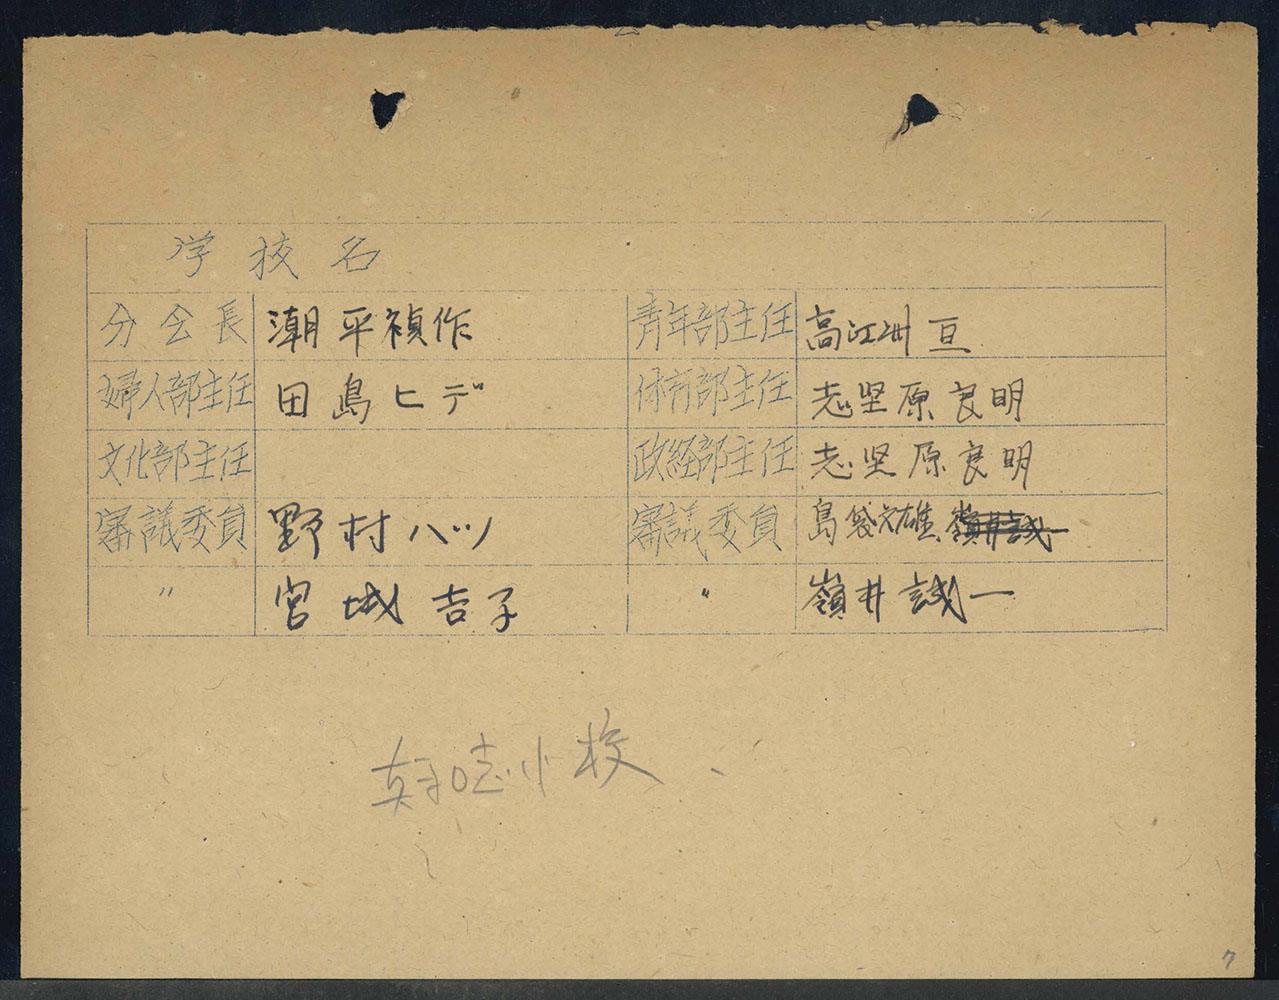 学校名
分会長 潮平禎作 青年部主任 高江洲亘
婦人部主任 田島ヒデ 体育部主任 志堅原良明
文化部主任 政経部主任 志堅原良明
審議委員 野村ハツ 審議委員 島袋文雄 嶺井誠一
〃 宮城吉子 〃 嶺井誠一
小校
7